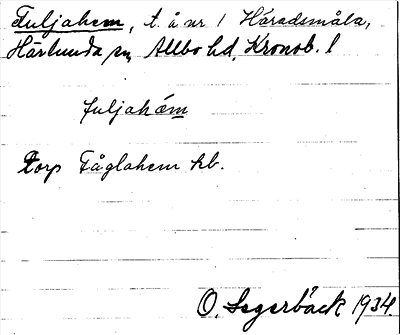 Fuljahem, t. å nr 1 Häradsmåla,
Härlunda sn, Allbo hd, Kronob. l
fuljahém
Torp Fåglahem kb.
O. Segerbäck 1934.